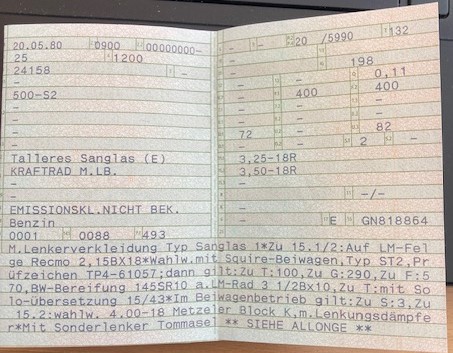 20.05.80 0900 00000000-
25 1200
24158 -
-
500-S2
-
-
-
Talleres Sanglas (E)
KRAFTRAD M.LB.
-
-
EMISSIONSKL.NICHT BEK.
Benzin
0001 0088 493
- - 20 /5990 132
-
- 198
- - 0,11
- - 400
- 400 -
- - -
- - -
72 - 82
- - 2 -
3,25-18R
3,50-18R
-
- -/-
-
- E GN818864
M.Lenkerverkleidung Typ Sanglas 1*Zu 15.1/2:Auf LM-Fel
ge Recmo 2,15BX18*Wahlw.mit Squire-Beiwagen,Typ ST2,Pr
üfzeichen TP4-61057;dann gilt:Zu T:100,Zu G:290,Zu F:5
70,BW-Bereifung 145SR10 a.LM-Rad 3 1/2Bx10,Zu T:mit So
lo-Übersetzung 15/43*Im Beiwagenbetrieb gilt:Zu S:3,Zu
15.2:wahlw. 4.00-18 Metzeler Block K,m.Lenkungsdämpfe
r*Mit Sonderlenker Tommasel ** SIEHE ALLONGE **